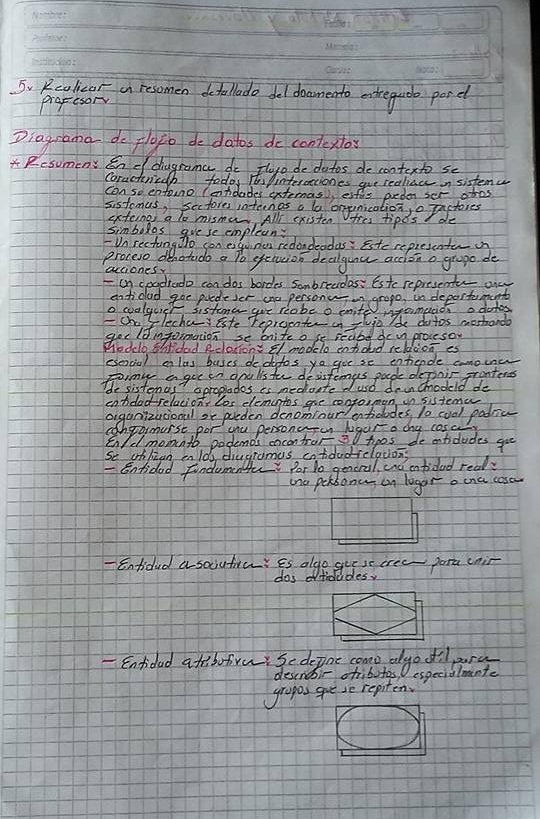 Nombre:
Fecha:
Profesor:
Materia:
Institución:
Curso: Nota:
5. Realizar un resumen detallado del documento entregado por el
profesor.
Diagrama de flujo de datos de contexto:
* Resumen: En el diagrama de flujo de datos de contexto se
caracterizan todas las interacciones que realiza un sistema
con su entorno (entidades externas), estas pueden ser otros
sistemas, sectores internos a la organización, o factores
externos a la misma. Allí existen tres tipos de
símbolos que se emplean:
- Un rectangulo con esquinas redondeadas: Este representa un
proceso denotado a la ejecucion de alguna acción o grupo de
acciones.
- Un cuadrado con dos bordes sombreados: Este representa una
entidad que puede ser una persona, un grupo, un departamento
o cualquier sistema que recibe o emite información o datos.
- Una flecha: Este representa un flujo de datos mostrando
que la información se emite o se recibe de un proceso.
Modelo Entidad Relación: El modelo entidad relación es
esencial en las bases de datos ya que se entiende como una
forma en que un analista de sistemas puede definir fronteras
de sistemas apropiados es mediante el uso de un modelo de
entidad-relacion. Los elementos que conforman un sistema
organizacional se pueden denominar entidades, lo cual podria
conformarse por una persona, un lugar o una cosa.
En el momento podemos encontrar 3 tipos de entidades que
se utilizan en los diagramas entidad-relación:
- Entidad fundamental: Por lo general, una entidad real:
una persona, un lugar o una cosa
- Entidad asociativa: Es algo que se crea para unir
dos entidades.
- Entidad atributiva: Se define como algo útil para
describir atributos, especialmente
grupos que se repiten.